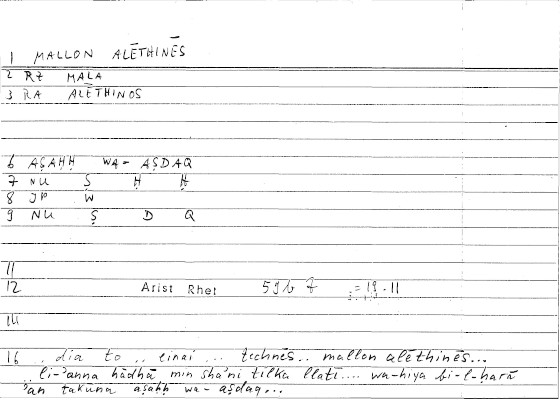 1 MALLON ALĒTHINĒS
2 RZ MALA
3 RA ALĒTHINOS
6 AṢAḤḤ WA- AṢDAQ
7 NU Ṣ Ḥ Ḥ
8 JP W
9 NU Ṣ D Q
11
12 Arist Rhet 59b 7 = 19.11
14
16 .. dia to .. einai ... technēs .. mallon alēthinēs...
.. li-'anna hādhā min sha'ni tilka llatī.... wa-hiya bi-l-ḥarā
'an takūna aṣaḥḥ wa- aṣdaq...